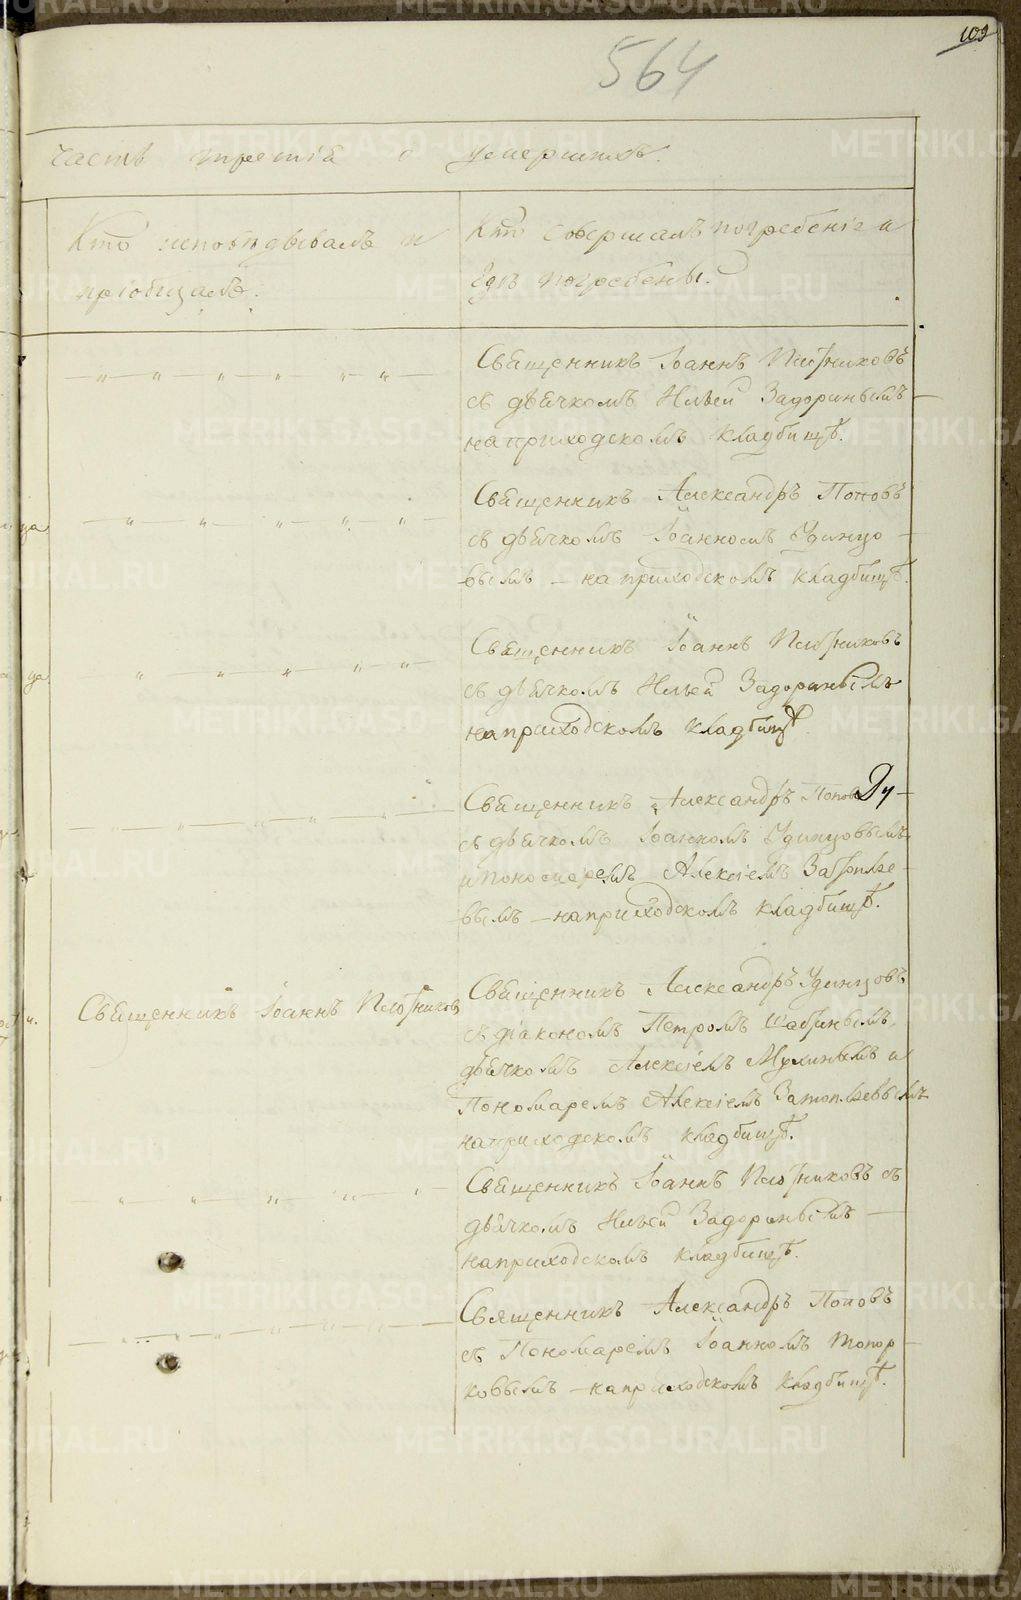 109
564
Часть третія о умершихъ.
Кто исповѣдывалъ и
пріобщалъ.
Кто совершалъ погребеніе и
гдѣ погребены.
Священникъ Іоаннъ Плотниковъ
съ дьячкомъ Ильей Задоринымъ
на приходскомъ кладбищѣ.
Священникъ Александръ Поповъ
съ дьячкомъ Іоанномъ Удинцо-
вымъ – на приходскомъ кладбищѣ.
Священникъ Іоаннъ Плотниковъ
съ дьячкомъ Ильей Задоринымъ
на приходскомъ кладбищѣ.
Священникъ Александръ Поповъ
съ дьячкомъ Іоанномъ Удинцовымъ
и пономаремъ Алексіемъ Затопляе-
вымъ – на приходскомъ кладбищѣ.
Священникъ Іоаннъ Плотниковъ
Священникъ Александръ Удинцовъ
съ діакономъ Петромъ
дьячкомъ Алексіемъ и
Пономаремъ Алексіемъ
на приходскомъ кладбищѣ.
Священникъ Іоаннъ Плотниковъ съ
дьячкомъ Ильей Задоринымъ –
на приходскомъ кладбищѣ.
Священникъ Александръ Поповъ
съ Пономаремъ Іоанномъ Топор-
ковымъ – на приходскомъ кладбищѣ.
METRIKI.GASO-URAL.RU